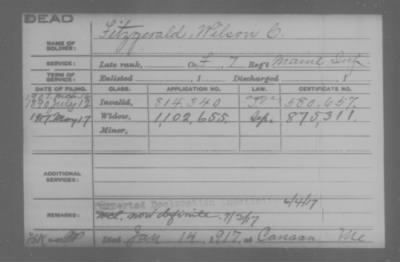 DEAD
NAME OF SOLDIER: Fitzgerald, Wilson C.
SERVICE: Late rank, Co. F, 7 Reg't Maine Inf.
TERM OF SERVICE: Enlisted , 1 Discharged , 1
DATE OF FILING. CLASS. APPLICATION NO. LAW. CERTIFICATE NO.
1890 July 12 Invalid, 814,340 580,657
1917 May 17 Widow, 1,102,655 875,311
Minor,
ADDITIONAL SERVICES:
REMARKS: now definite 7/3/17
Died Jan 14, 1917, at Canaan Me